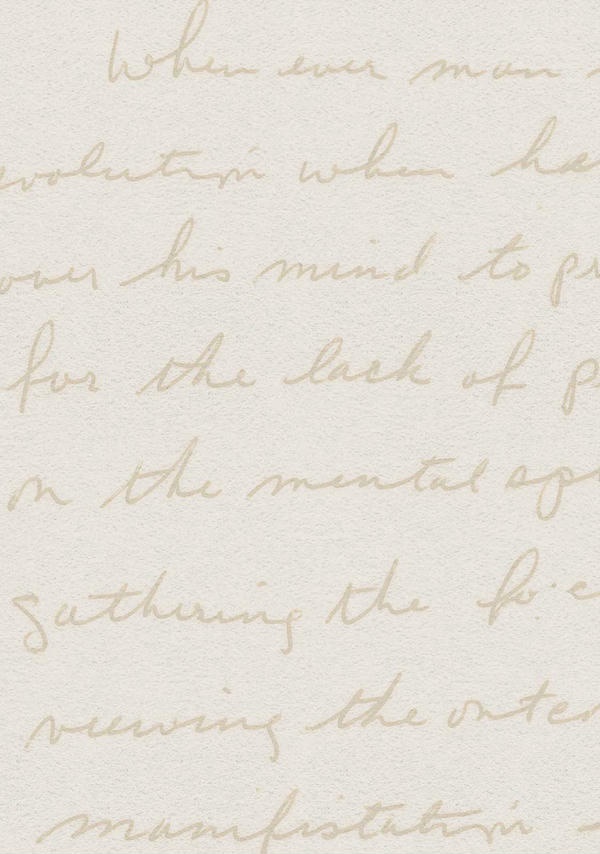 When ever man
evolution when ha
over his mind to pr
for the lack of p
on the mental sp
gathering the
viewing the outer
manifistation